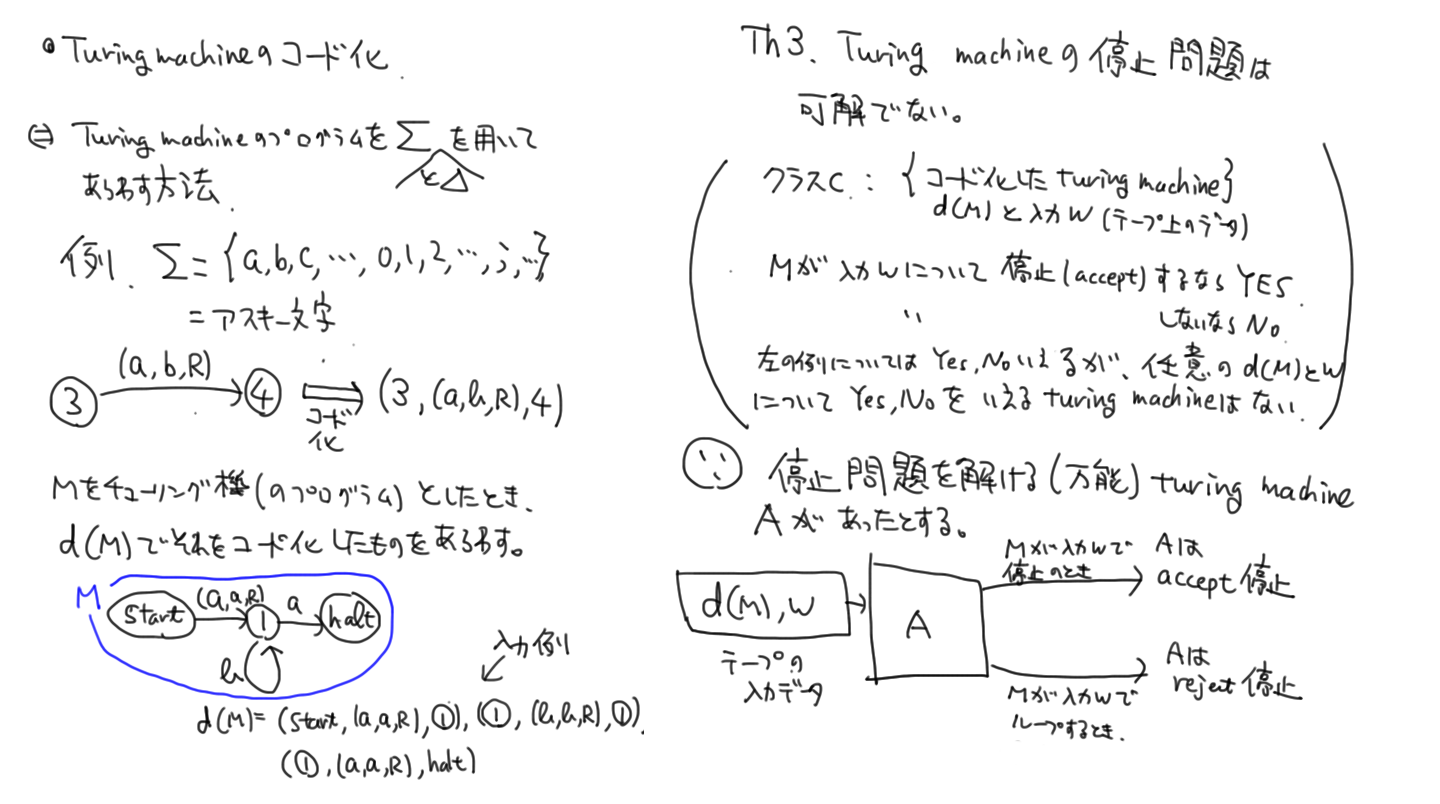 • Turing machineのコード化
(=) Turing machineのプログラムを Σ を用いて
とΔ
あらわす方法
例. Σ = {a,b,c,…, 0,1,2,…,;,…}
= アスキー文字
③ (a,b,R) ④ ⇒ (3,(a,b,R),4)
コード化
Mをチューリング機(のプログラム)としたとき、
d(M)でそれをコード化したものをあらわす。
M start (a,a,R) ① a halt
b
入力例
d(M)= (start,(a,a,R),①), (①,(b,b,R),①),
(①,(a,a,R),halt)
Th3. Turing machineの停止問題は
可解でない。
クラスC : {コード化した turing machine}
d(M)と入力w(テープ上のデータ)
Mが入力wについて停止(accept)するなら YES.
〃 しないなら No
左の例については Yes,Noいえるが、任意の d(M)とw
について Yes,Noをいえる turing machineはない.
∵ 停止問題を解ける(万能) turing machine
Aがあったとする。
d(M), w
テープの
入力データ
A
Mが入力wで
停止のとき
Aは
accept 停止
Mが入力wで
ループするとき.
Aは
reject 停止